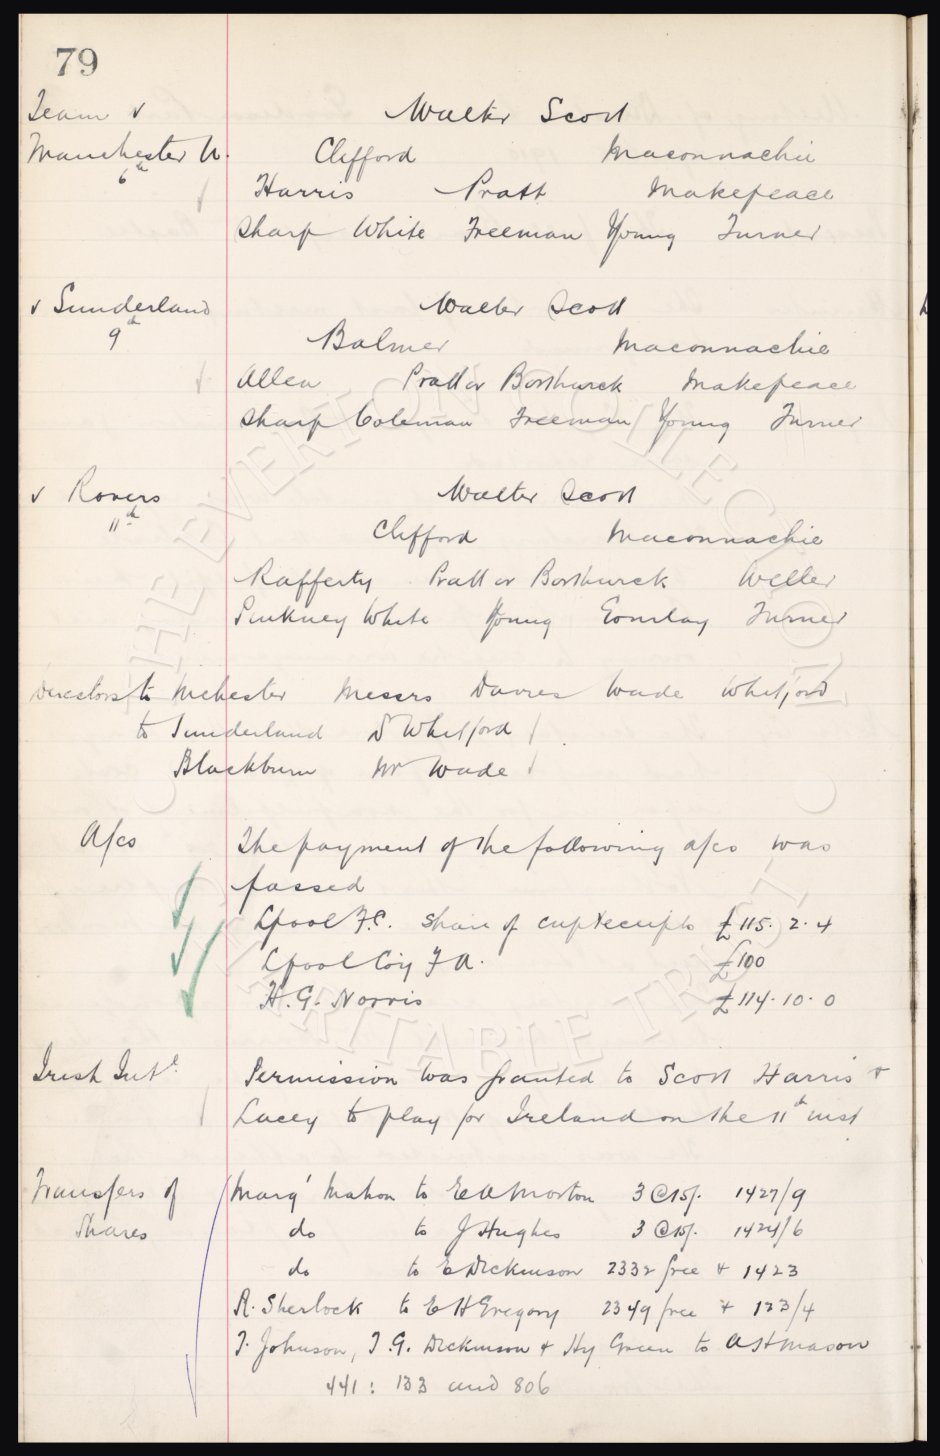 79
Team v Walter Scott
Manchester U. Clifford Maconnachie
6th Harris Pratt Makepeace
Sharp White Freeman Young Turner
v Sunderland Walter Scott
9th Balmer Maconnachie
Allen Pratt or Borthwick Makepeace
Sharp Coleman Freeman Young Turner
v Rovers Walter Scott
11th Clifford Maconnachie
Rafferty Pratt or Borthwick Weller
Pinkney White Young Gourlay Turner
Directors to Mchester Messrs Davies Wade Whitford
to Sunderland Dr Whitford
Blackburn Mr Wade
A/cs The payment of the following a/cs was
passed
Lpool F.C. share of cup receipts £115. 2. 4
Lpool Coy F A. £100
H. G. Norris £114. 10. 0
Irish Intl. Permission was granted to Scott Harris &
Lacey to play for Ireland on the 11th inst
Transfers of Shares
Marg' Mahon to E A Morton 3 @ 15/- 1427/9
do to J Hughes 3 @ 15/- 1424/6
do to E Dickinson 2332 free & 1423
R. Sherlock to E H Gregory 2349 free & 123/4
T. Johnson, T. G. Dickinson & Hy Green to A H Mason
441 : 133 and 806
THE EVERTON COLLECTION
CHARITABLE TRUST